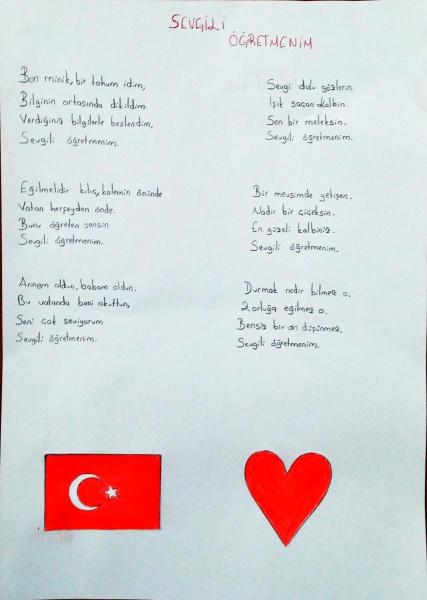 SEVGİLİ
ÖĞRETMENİM
Ben minik, bir tohum idim,
Bilginin ortasında dikildim.
Verdiğiniz bilgilerle beslendim,
Sevgili öğretmenim.
Eğilmelidir kılıç, kalemin önünde
Vatan herşeyden önde.
Bunu öğreten sensin
Sevgili öğretmenim.
Annem oldun, babam oldun.
Bu vatanda beni okuttun,
Seni çok seviyorum
Sevgili öğretmenim.
Sevgi dolu gözlerin.
Işık saçan kalbin.
Sen bir meleksin.
Sevgili öğretmenim.
Bir mevsimde yetişen.
Nadir bir çiçeksin.
En güzeli kalbiniz.
Sevgili öğretmenim.
Durmak nedir bilmez o.
Zorluğa eğilmez o.
Bensiz bir an düşünmez.
Sevgili öğretmenim.